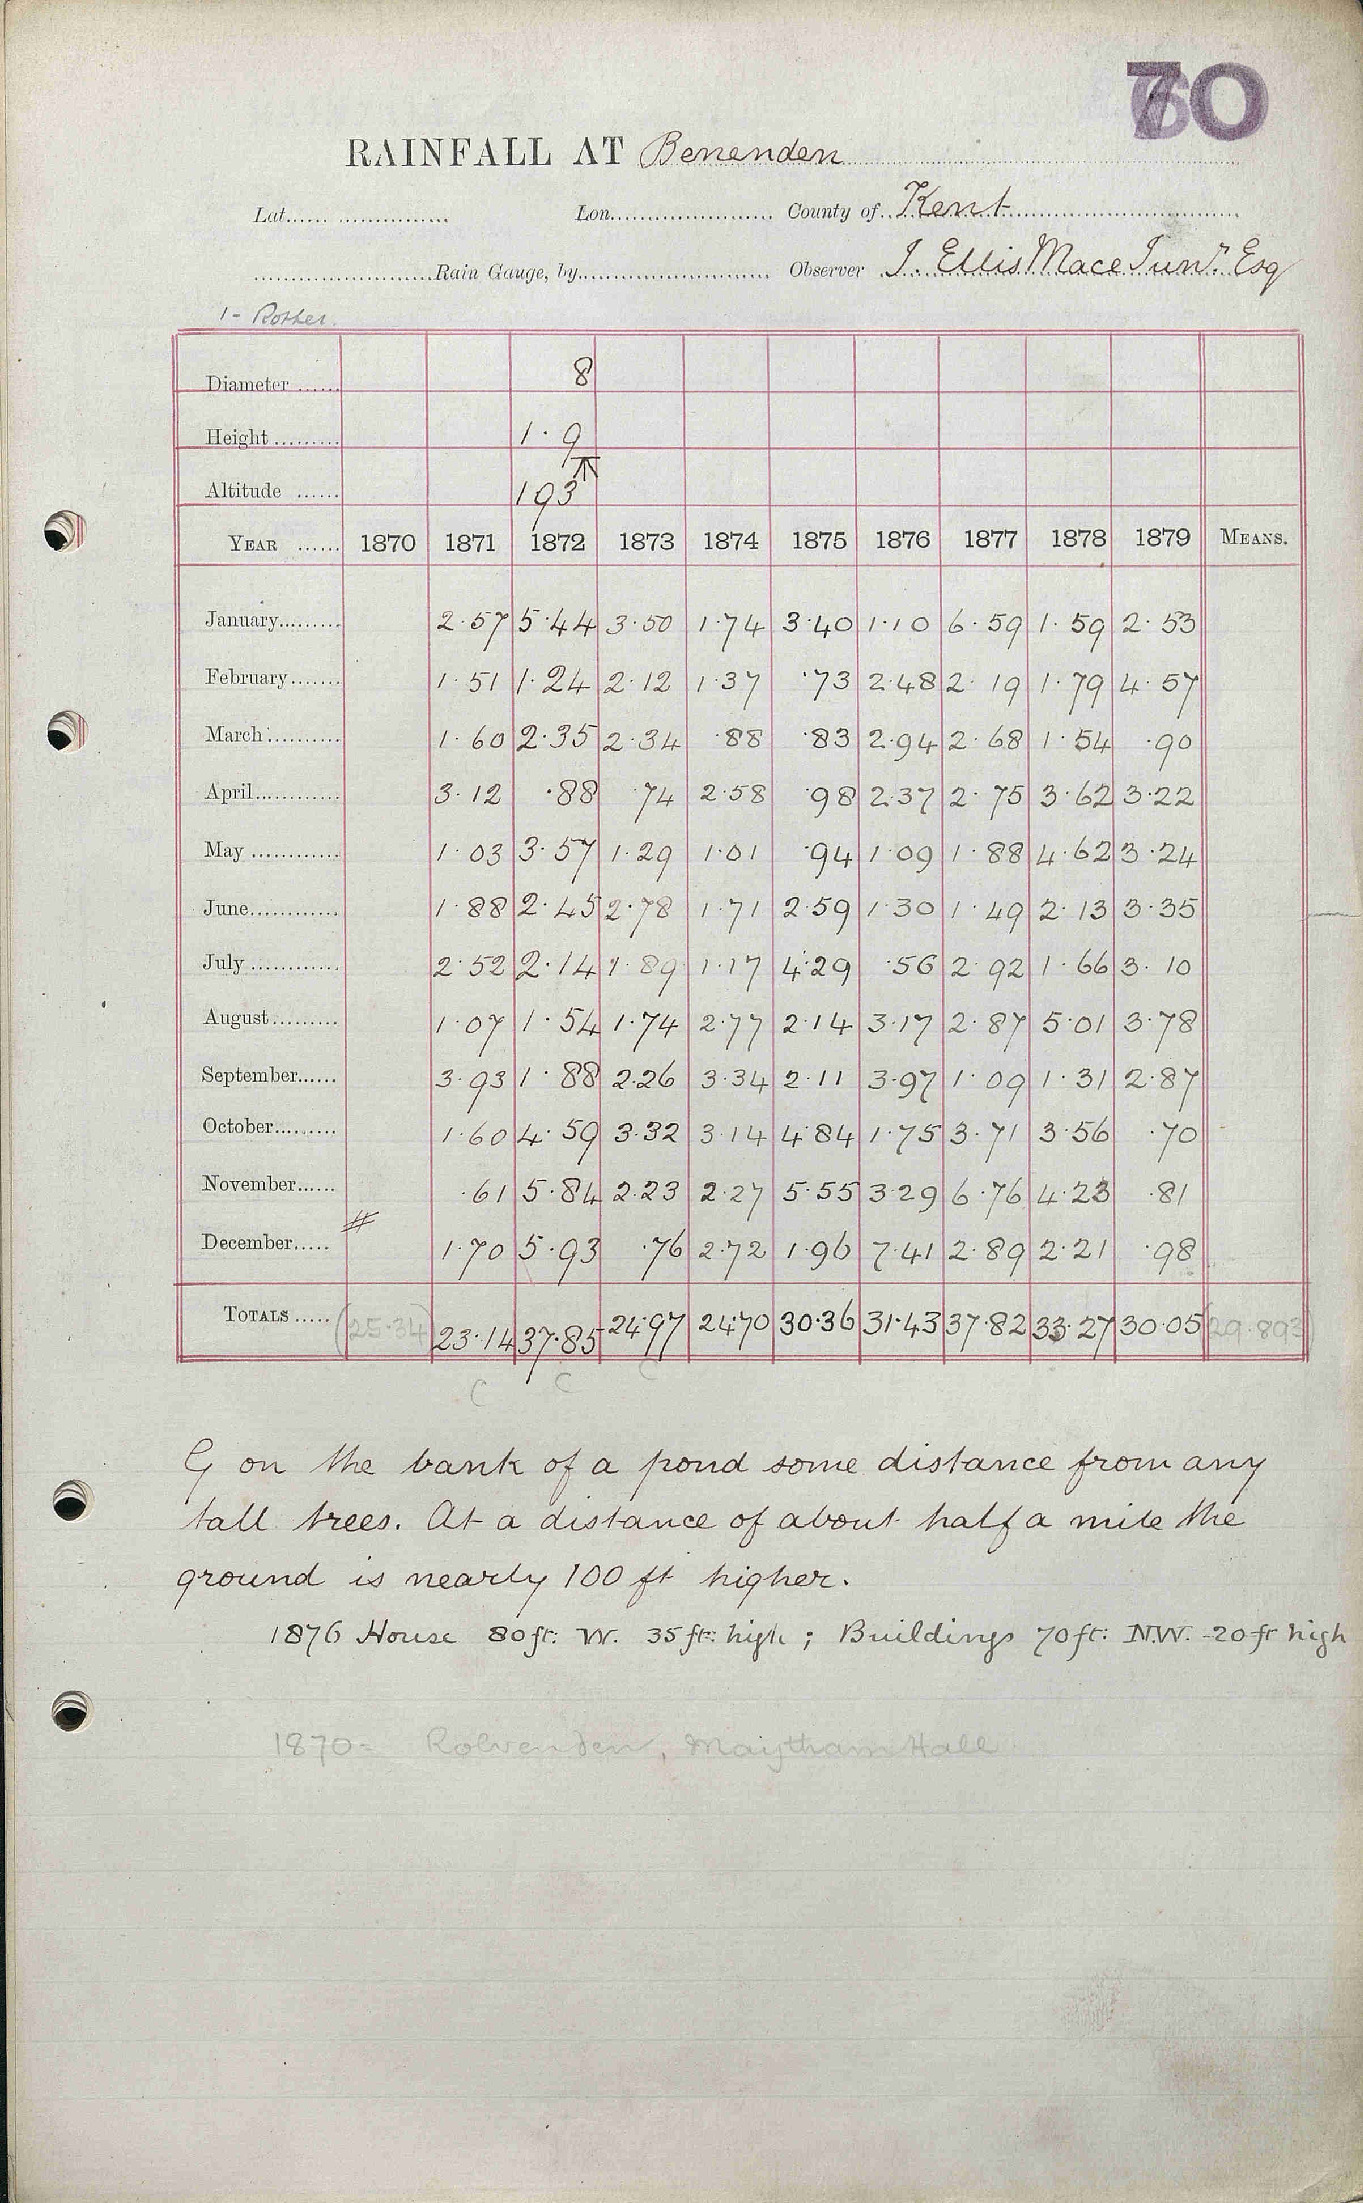 70
RAINFALL AT Benenden
Lat...... Lon...... County of Kent
......Rain Gauge, by...... Observer J. Ellis Mace Junr. Esq
1- Rother.
Diameter ...... 8
Height ......... 1·9
Altitude ...... 193
YEAR ...... 1870 1871 1872 1873 1874 1875 1876 1877 1878 1879 MEANS.
January......... 2·57 5·44 3·50 1·74 3·40 1·10 6·59 1·59 2·53
February....... 1·51 1·24 2·12 1·37 ·73 2·48 2·19 1·79 4·57
March........... 1·60 2·35 2·34 ·88 ·83 2·94 2·68 1·54 ·90
April............. 3·12 ·88 ·74 2·58 ·98 2·37 2·75 3·62 3·22
May ............. 1·03 3·57 1·29 1·01 ·94 1·09 1·88 4·62 3·24
June............. 1·88 2·45 2·78 1·71 2·59 1·30 1·49 2·13 3·35
July ............. 2·52 2·14 1·89 1·17 4·29 ·56 2·92 1·66 3·10
August.......... 1·07 1·54 1·74 2·77 2·14 3·17 2·87 5·01 3·78
September...... 3·93 1·88 2·26 3·34 2·11 3·97 1·09 1·31 2·87
October......... 1·60 4·59 3·32 3·14 4·84 1·75 3·71 3·56 ·70
November...... ·61 5·84 2·23 2·27 5·55 3·29 6·76 4·23 ·81
December..... # 1·70 5·93 ·76 2·72 1·96 7·41 2·89 2·21 ·98
TOTALS ..... (25·34) 23·14 37·85 24·97 24·70 30·36 31·43 37·82 33·27 30·05 (29·893)
C C C
G on the bank of a pond some distance from any
tall trees. At a distance of about half a mile the
ground is nearly 100 ft higher.
1876 House 80 ft: W. 35 ft: high; Buildings 70 ft: N.W. -20 ft high
1870= Rolvenden, Maytham Hall